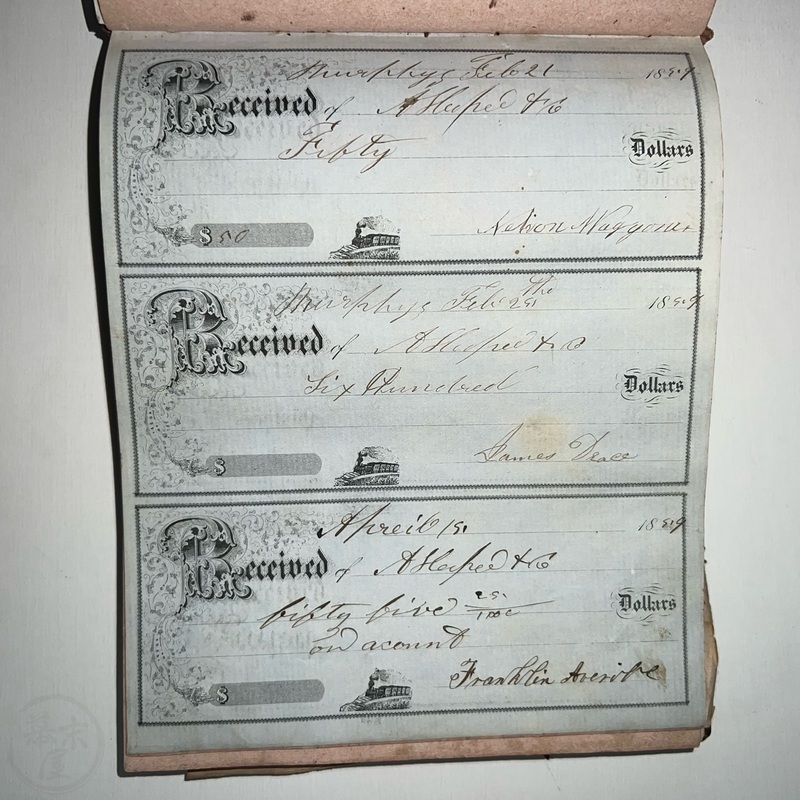 Murphys Feb 21 1859
Received of A Heeped & Co
Fifty Dollars
$50
Nelson Waggoner
Murphys Feb 25 the 1859
Received of A Heeped & Co
Six Hundred Dollars
$
James Deace
Apreil 15 1859
Received of A Heeped & Co
fifty five 25/100 Dollars
on acount
$
Franklin